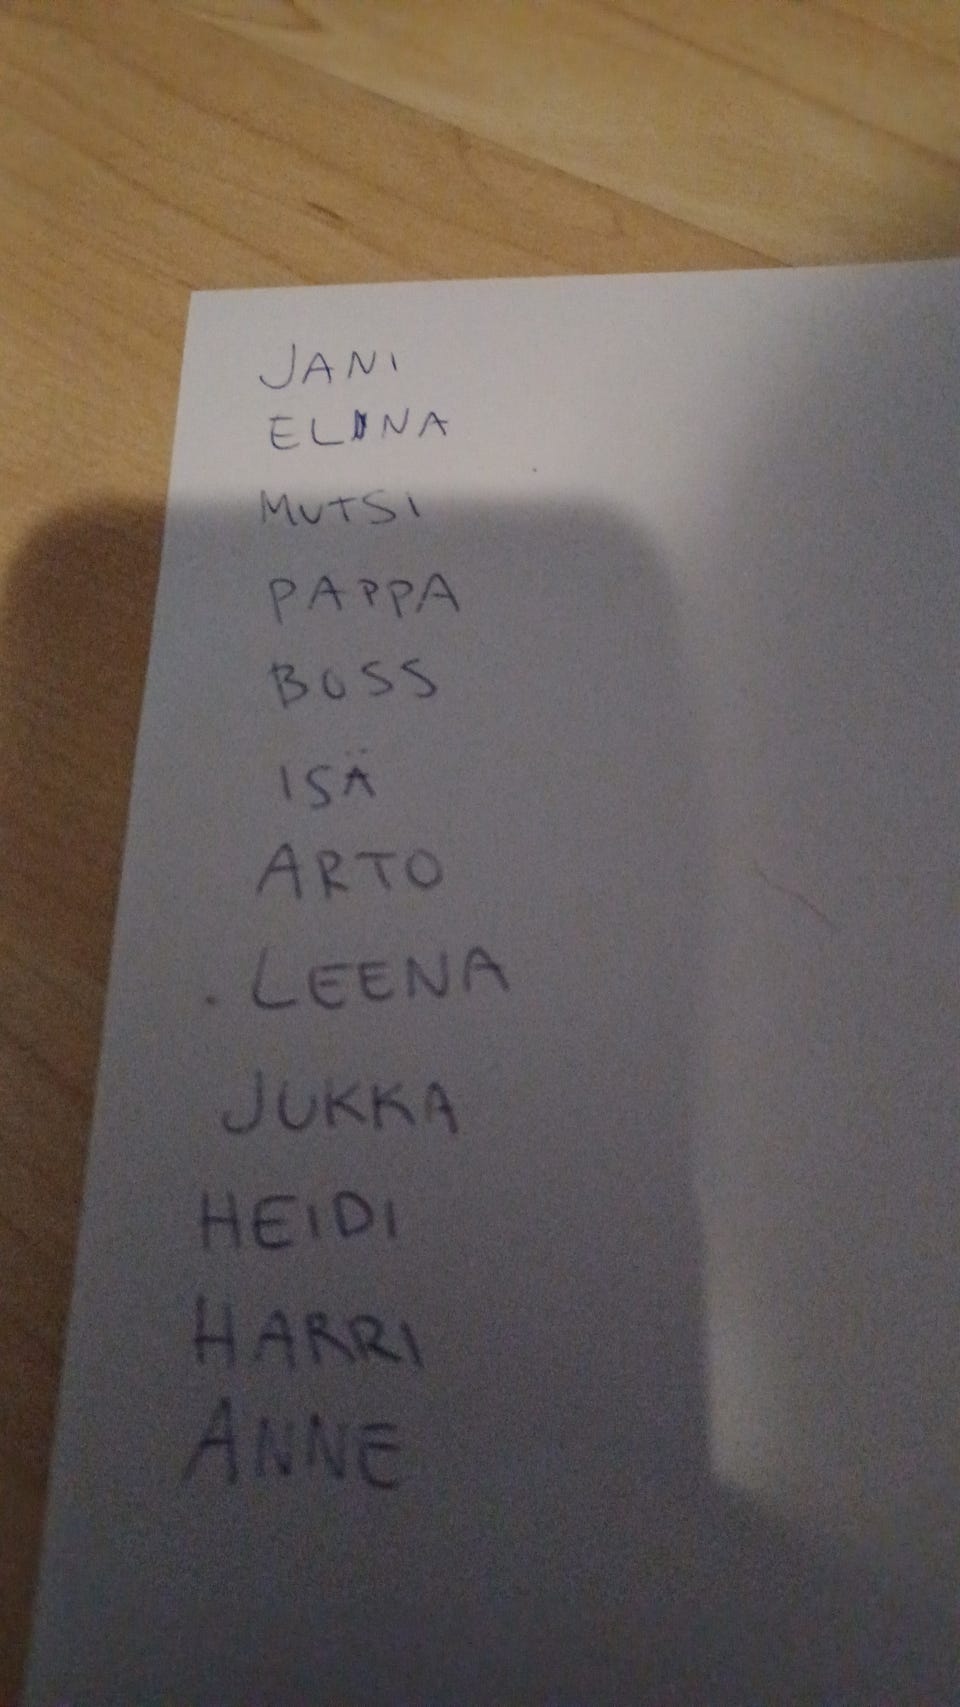 JANI
ELINA
MUTSI
PAPPA
BOSS
ISÄ
ARTO
LEENA
JUKKA
HEIDI
HARRI
ANNE